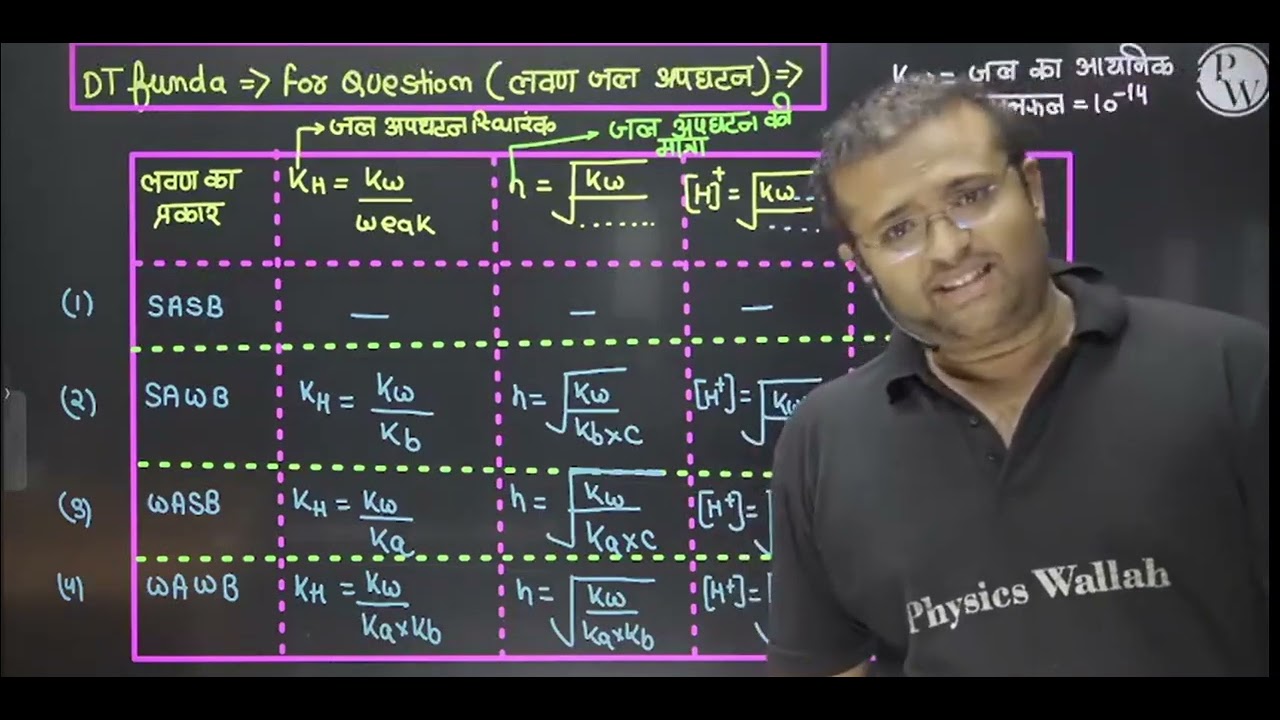 DT funda => For Question (लवण जल अपघटन) =>
= जल का आयनिक
= 10⁻¹⁴
PW
जल अपघटन स्थिरांक
जल अपघटन की
मात्रा
लवण का
प्रकार
KH = Kw / weak
h = √(Kw / ......)
[H]⁺ = √(Kw... / ....)
(1) SASB — — —
(2) SAWB KH = Kw / Kb h = √(Kw / Kb×C) [H⁺] = √(Kw
(3) WASB KH = Kw / Ka h = √(Kw / Ka×C) [H⁺] = √
(4) WAWB KH = Kw / Ka×Kb h = √(Kw / Ka×Kb) [H⁺] = √
Physics Wallah